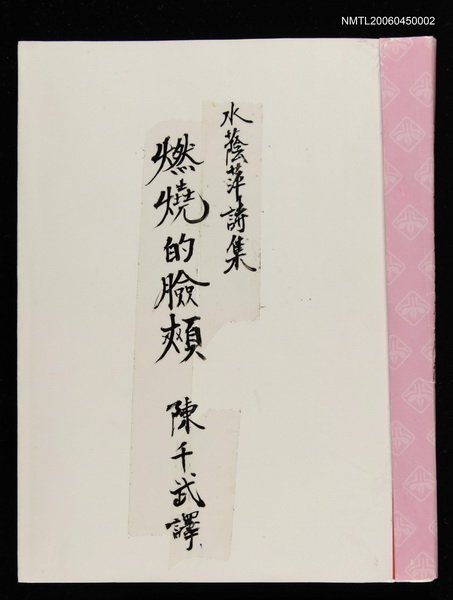 NMTL20060450002
水蔭萍詩集
燃燒的臉頰
陳千武譯